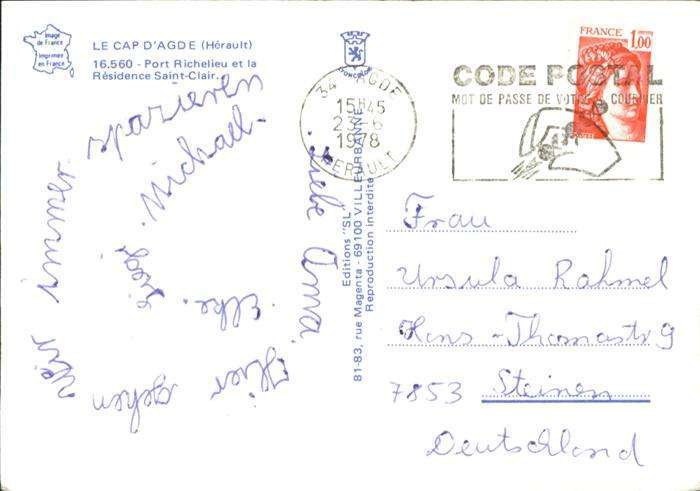 Image
de France
Imprimée
en France
LE CAP D'AGDE (Hérault)
16.560 - Port Richelieu et la
Résidence Saint-Clair.
34 AGDE
15H45
23-6
1978
HERAULT
FRANCE 1,00
CODE POSTAL
MOT DE PASSE DE VOTRE COURRIER
Editions "SL"
81-83, rue Magenta - 69100 VILLEURBANNE
Reproduction interdite
Liebe Oma,
Hier gehen
wir immer
spazieren
Michael.
Elke.
Frau
Ursula Rahmel
Hans-Thomastr 9
7853 Steinen
Deutschland